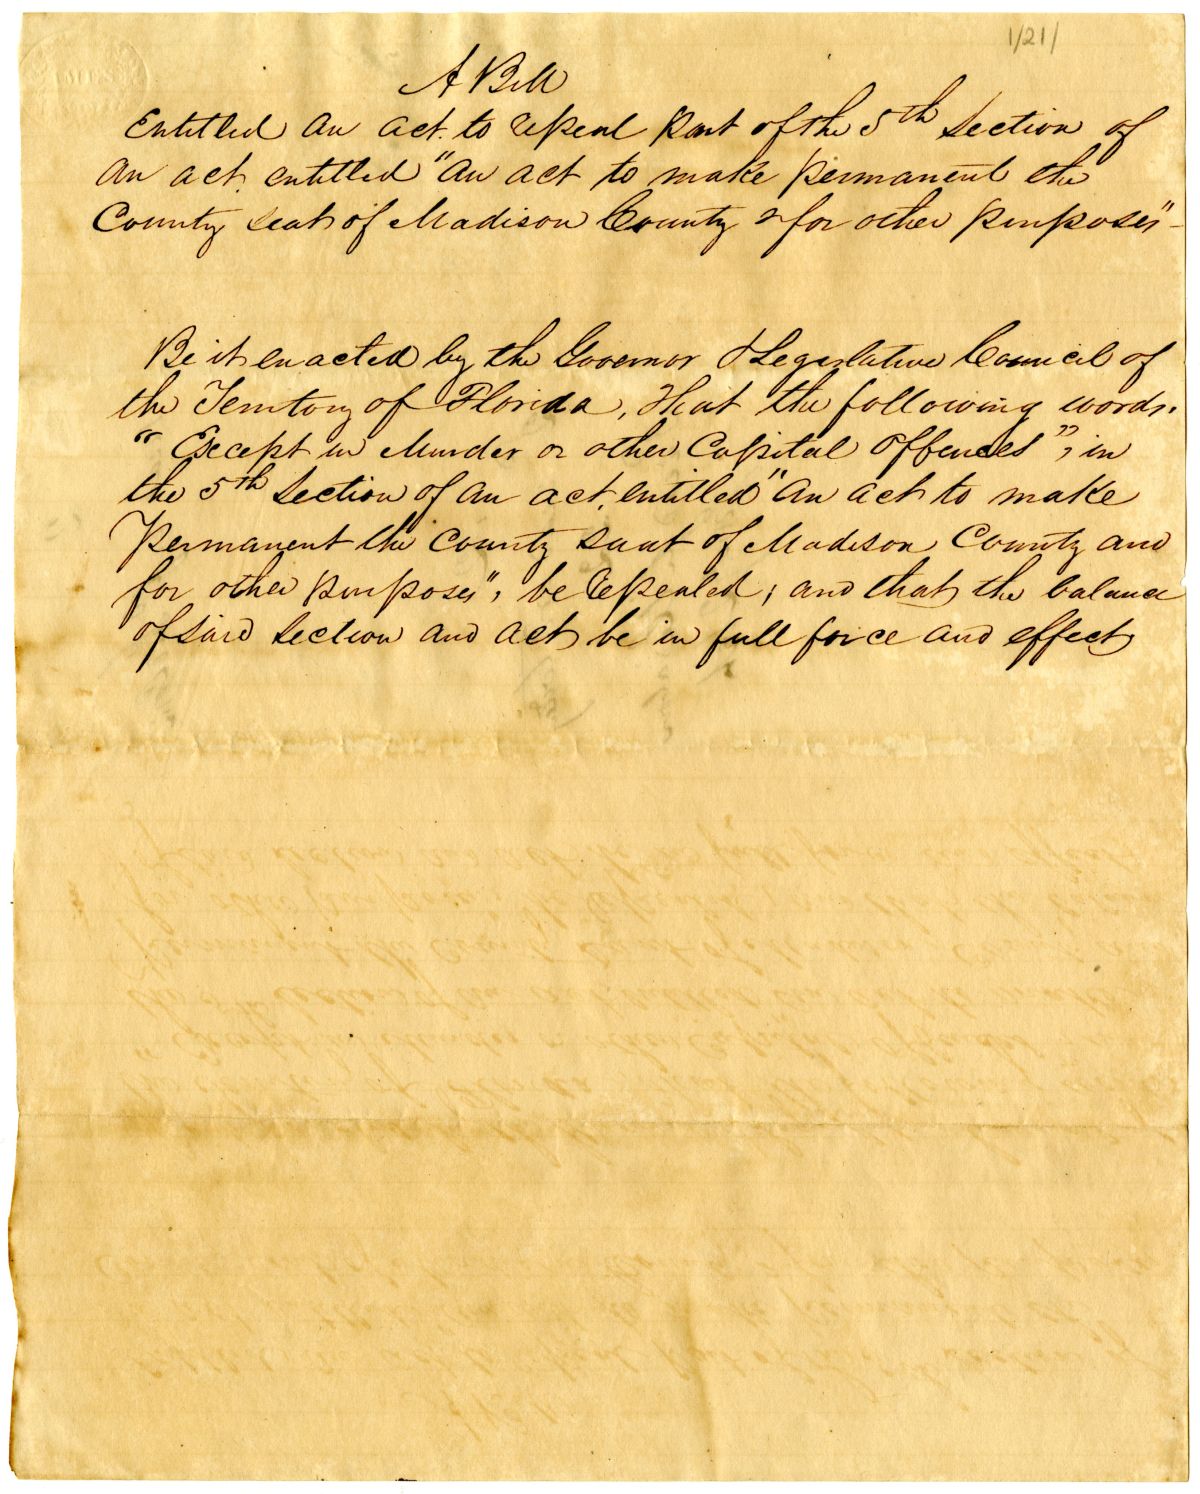 1/21/
A Bill
Entitled An act. to repeal part of the 5th Section of
An act. entitled "An act to make permanent the
County seat of Madison County & for other purposes"
Be it enacted by the Governor & Legislative Council of
the Territory of Florida, That the following words.
"Except in Murder or other Capital Offences", in
the 5th Section of An act, entitled "An act to make
Permanent the County seat of Madison County and
for other purposes", be repealed; and that the balance
of said section and act be in full force and effect